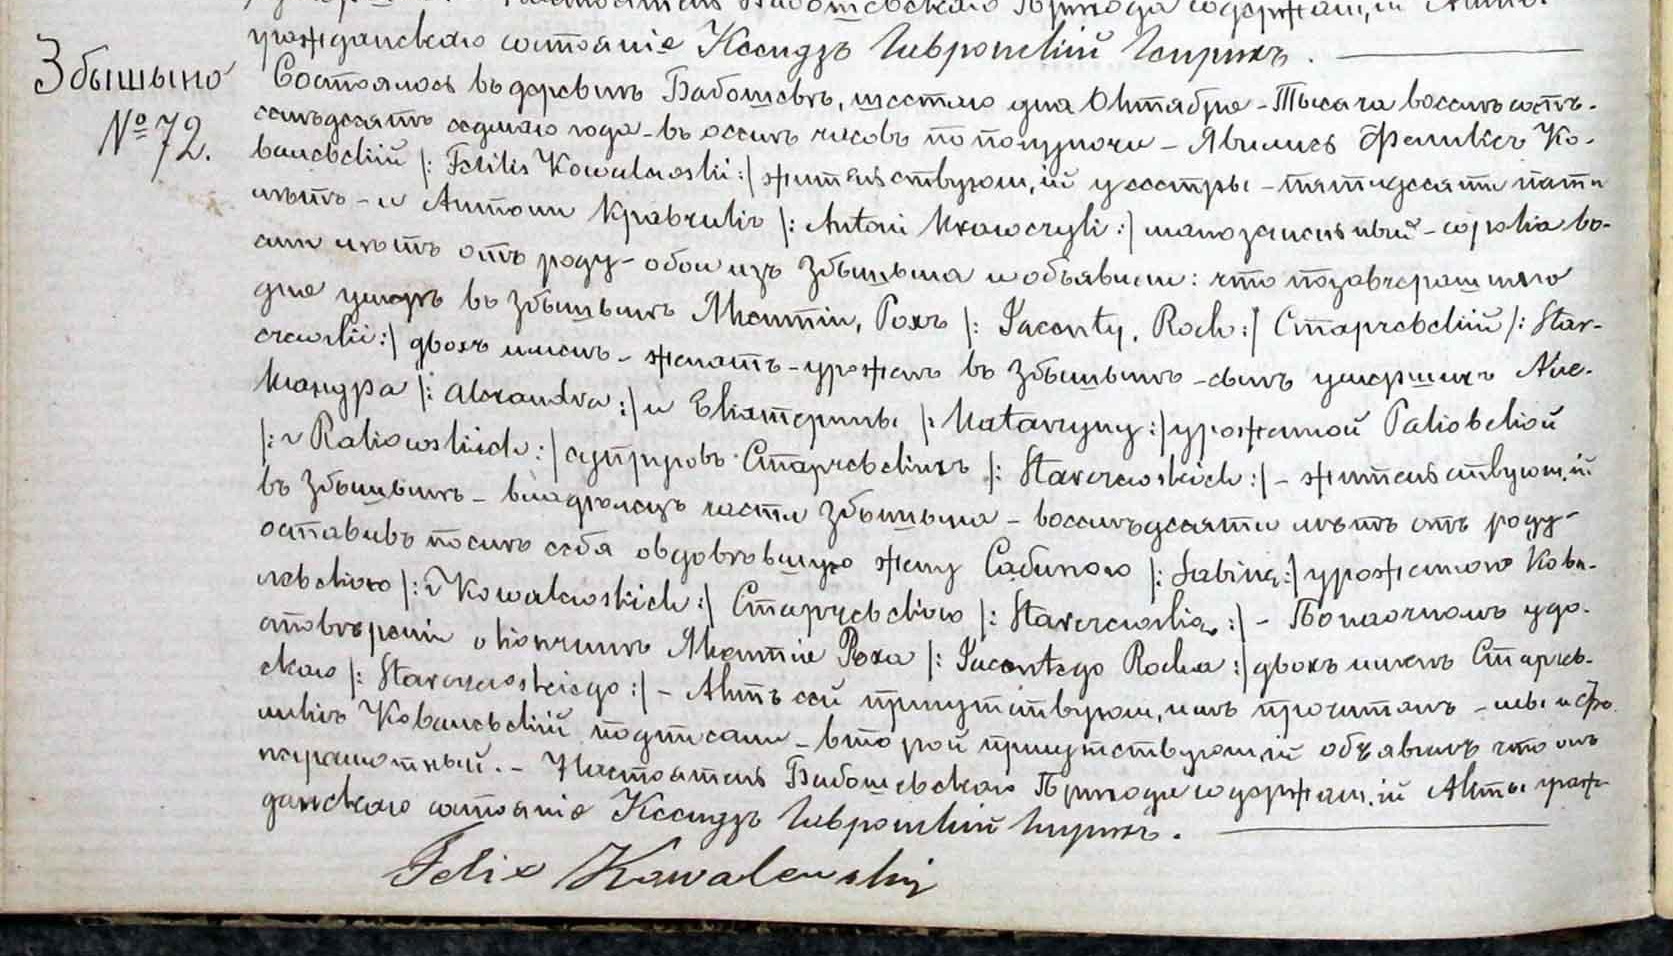 гражданскаго состоянія Ксендзъ Гавронскій Генрихъ.
Збышыно
№ 72.
Состоялось въ деревнѣ Бабошевѣ, шестаго дня Октября - Тысяча восемьсотъ
семьдесятъ седьмаго года - въ осемь часовъ по полуночи - Явились Феликсъ Ко-
валевскій |: Feliks Kowalewski :| жительствующій у сестры - пятидесяти пяти
лѣтъ - и Антони Кравчикъ |: Antoni Krawczyk :| малоземельный - сорока во-
сми лѣтъ отъ роду - обои изъ Збышына и объявили: что позавчерашняго
дня умеръ въ Збышынѣ Якентій, Рохъ |: Jacenty, Roch :| Старчевскій |: Star-
czewski :| двохъ именъ - женатъ - урожденъ въ Збышынѣ - сынъ умершихъ Але-
ксандра |: Alexandra :| и Екатерины |: Katarzyny :| урожденой Раковской
|: z Rakowskich :| супруговъ Старчевскихъ |: Starczewskich :| - жительствующій
въ Збышынѣ - владѣлецъ части Збышына - восемьдесяти лѣтъ отъ роду -
оставивъ послѣ себя овдовѣвшую жену Сабиную |: Sabinę :| урожденою Кова-
левскою |: z Kowalewskich :| Старчевскою |: Starczewską :| - По наочномъ удо-
стовѣреніи о кончинѣ Якентія Роха |: Jacentego Rocha :| двохъ именъ Старчев-
скаго |: Starczewskiego :| - Актъ сей присутствующимъ прочитанъ - мы и Фе-
ликсъ Ковалевскій подписали - второй присутствующій объявилъ что онъ
неграмотный. - Настоятель Бабошевскаго Прихода содержащій Акты граж-
данскаго состоянія Ксендзъ Гавронскій Генрихъ.
Felix Kowalewski